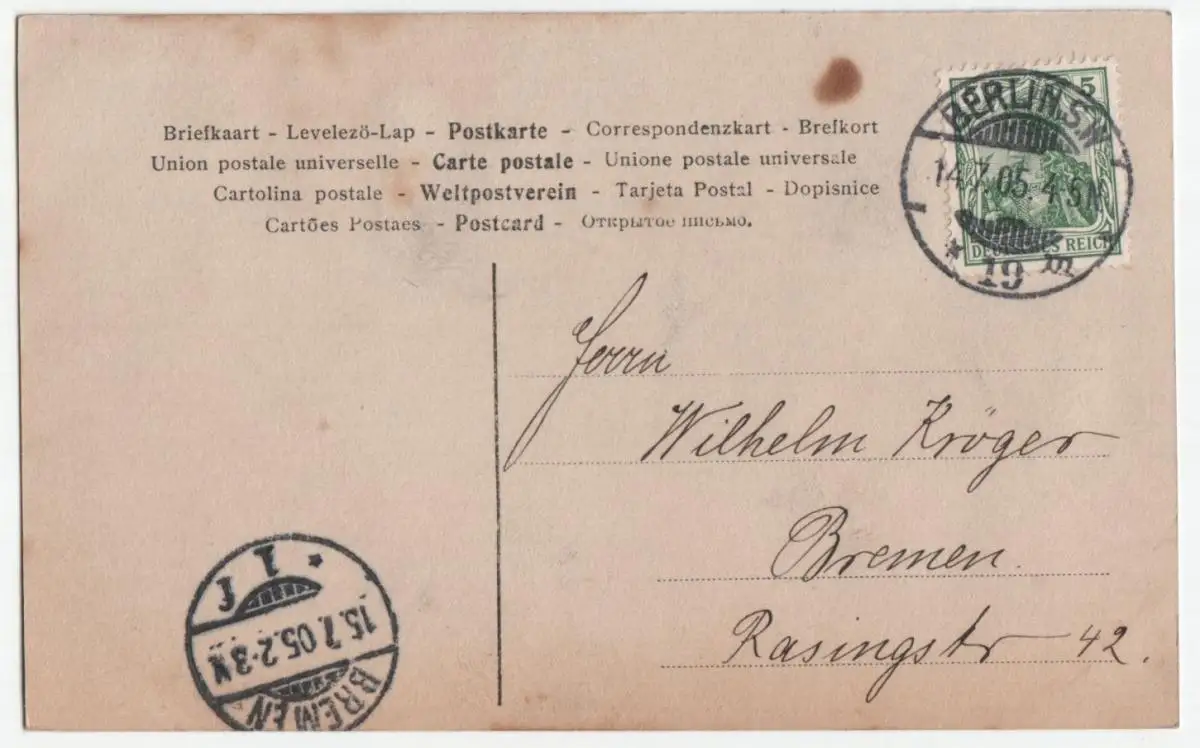 Briefkaart - Levelezö-Lap - Postkarte - Correspondenzkart - Brefkort
Union postale universelle - Carte postale - Unione postale universale
Cartolina postale - Weltpostverein - Tarjeta Postal - Dopisnice
Cartões Postaes - Postcard - Открытое письмо.
5
BERLIN.S.W
14.7.05.4-5N
DEUTSCHES REICH
* 19 m
Herrn
Wilhelm Kröger
Bremen.
Rasingstr 42.
* 1 f
15.7.05.2-3N
BREMEN